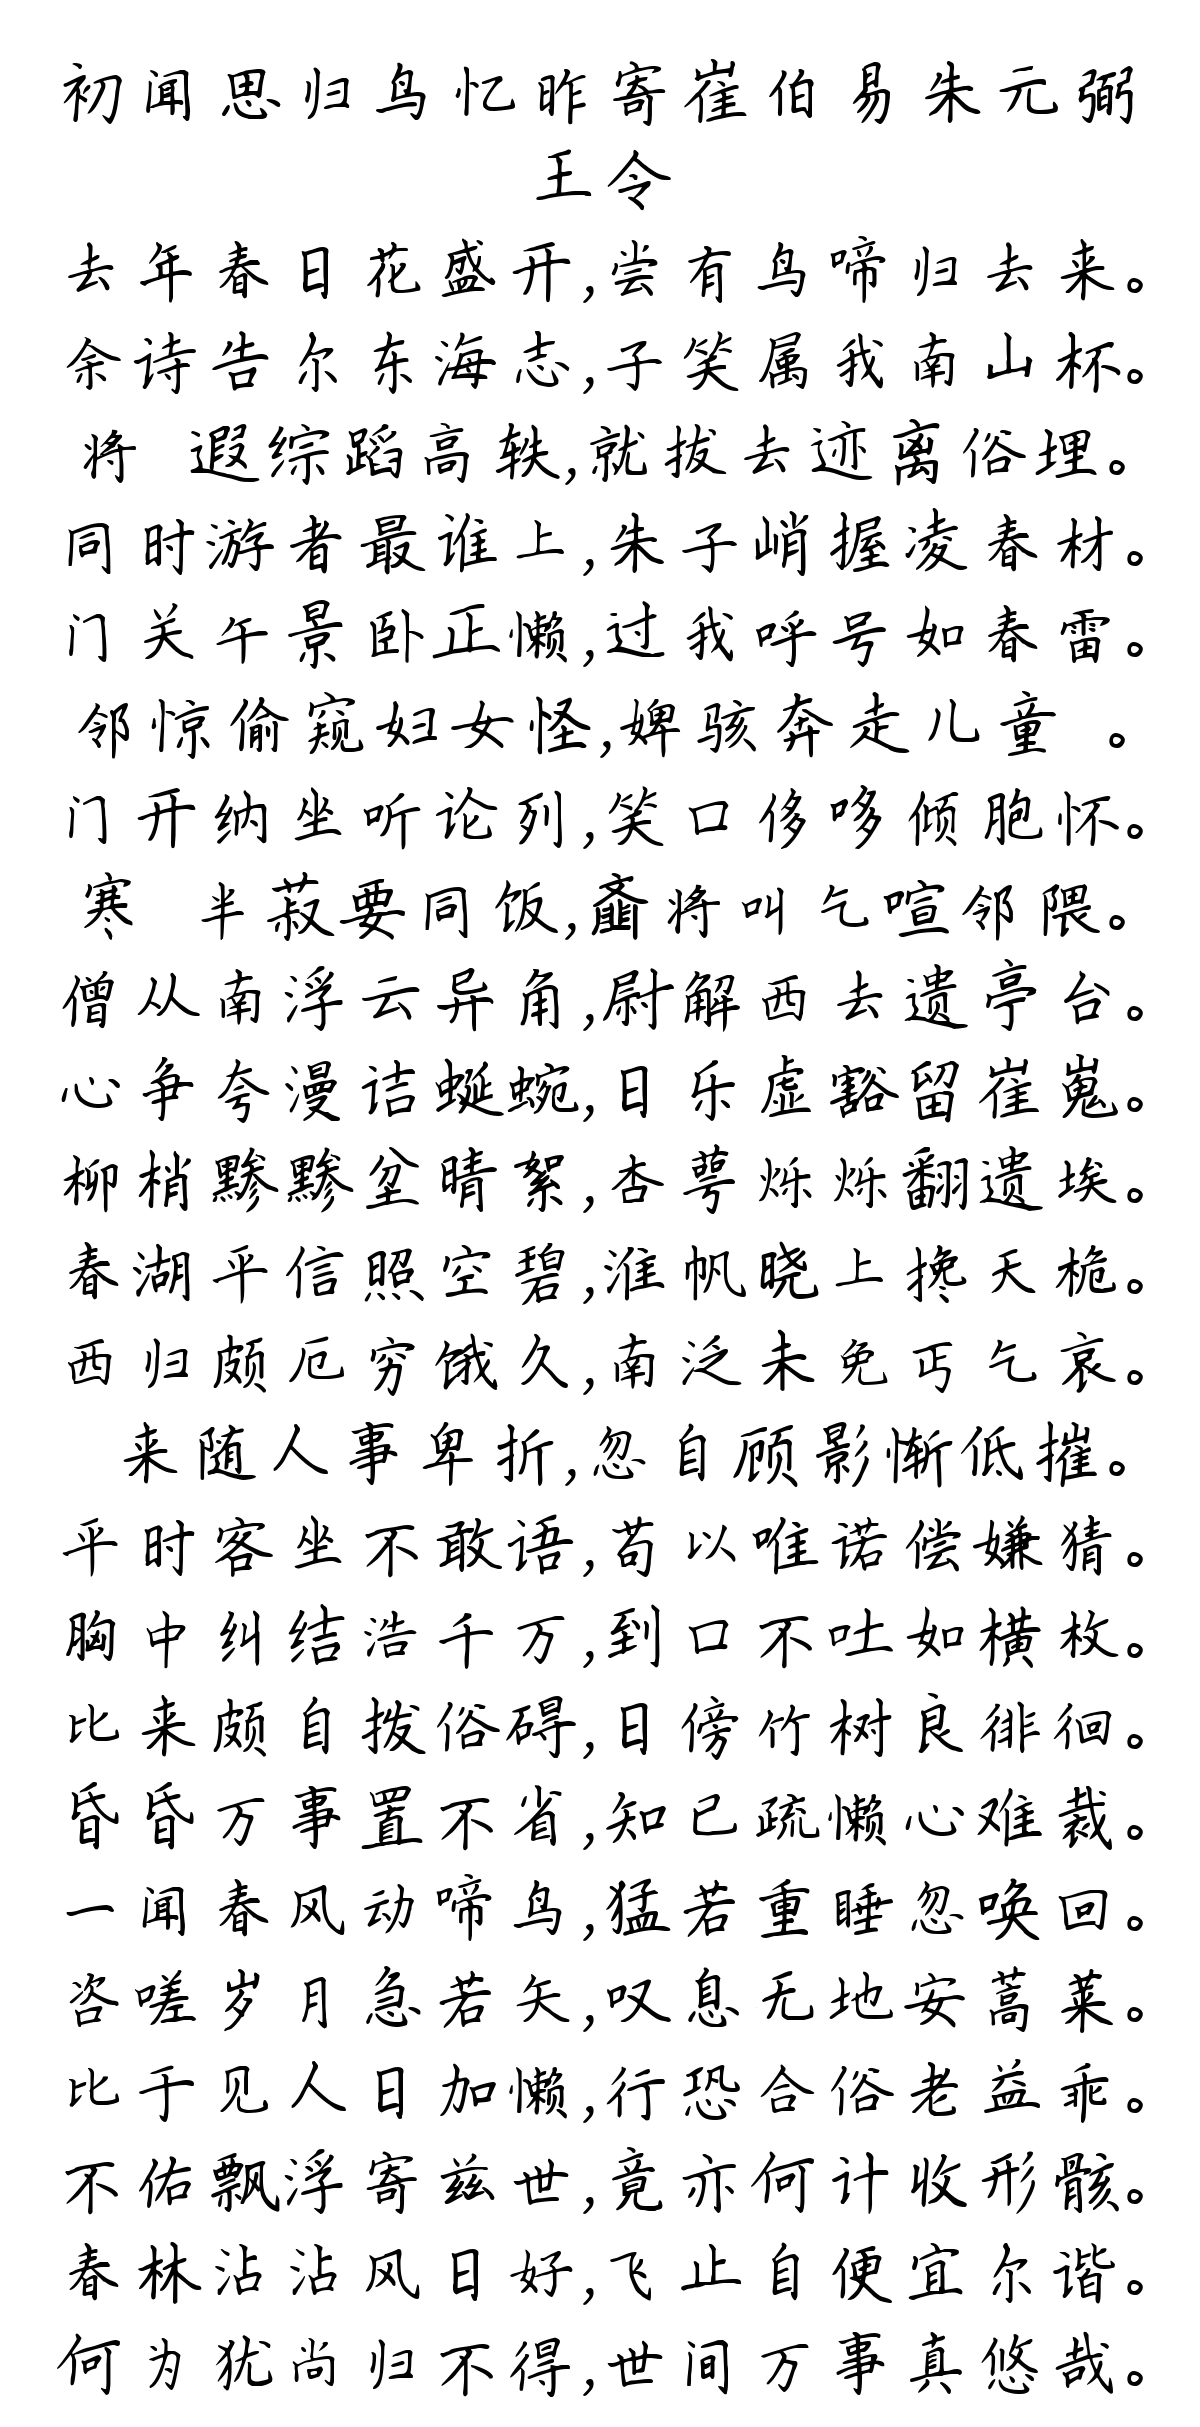 初闻思归鸟忆昨寄崔伯易朱元弼
王令
去年春日花盛开,尝有鸟啼归去来。
余诗告尔东海志,子笑属我南山杯。
将 遐综蹈高轶,就拔去迹离俗埋。
同时游者最谁上,朱子峭握凌春材。
门关午景卧正懒,过我呼号如春雷。
邻惊偷窥妇女怪,婢骇奔走儿童 。
门开纳坐听论列,笑口侈哆倾胞怀。
寒 半菽要同饭,齑将叫乞喧邻隈。
僧从南浮云异角,尉解西去遗亭台。
心争夸漫诘蜒蜿,日乐虚豁留崔嵬。
柳梢黪黪坌晴絮,杏萼烁烁翻遗埃。
春湖平信照空碧,淮帆晓上搀天桅。
西归颇厄穷饿久,南泛未免丐乞哀。
来随人事卑折,忽自顾影惭低摧。
平时客坐不敢语,苟以唯诺偿嫌猜。
胸中纠结浩千万,到口不吐如横枚。
比来颇自拨俗碍,日傍竹树良徘徊。
昏昏万事置不省,知已疏懒心难裁。
一闻春风动啼鸟,猛若重睡忽唤回。
咨嗟岁月急若矢,叹息无地安蒿莱。
比于见人日加懒,行恐合俗老益乖。
不佑飘浮寄兹世,竟亦何计收形骸。
春林沾沾风日好,飞止自便宜尔谐。
何为犹尚归不得,世间万事真悠哉。